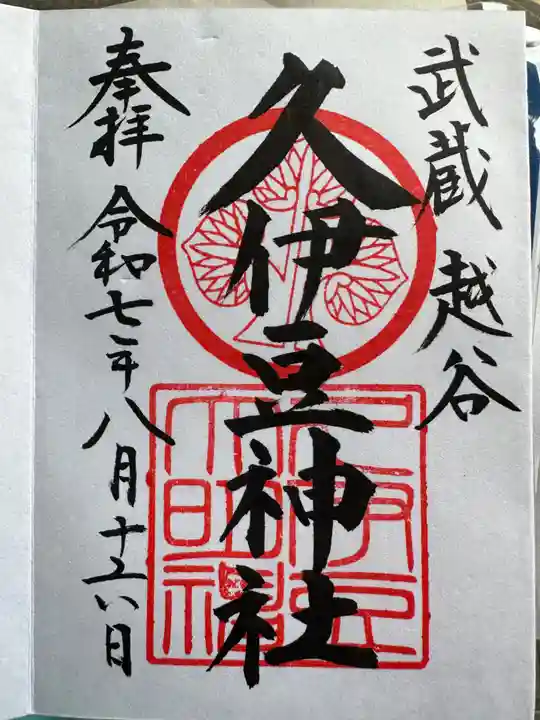 武蔵 越谷
久伊豆神社
奉拝 令和七年八月十六日